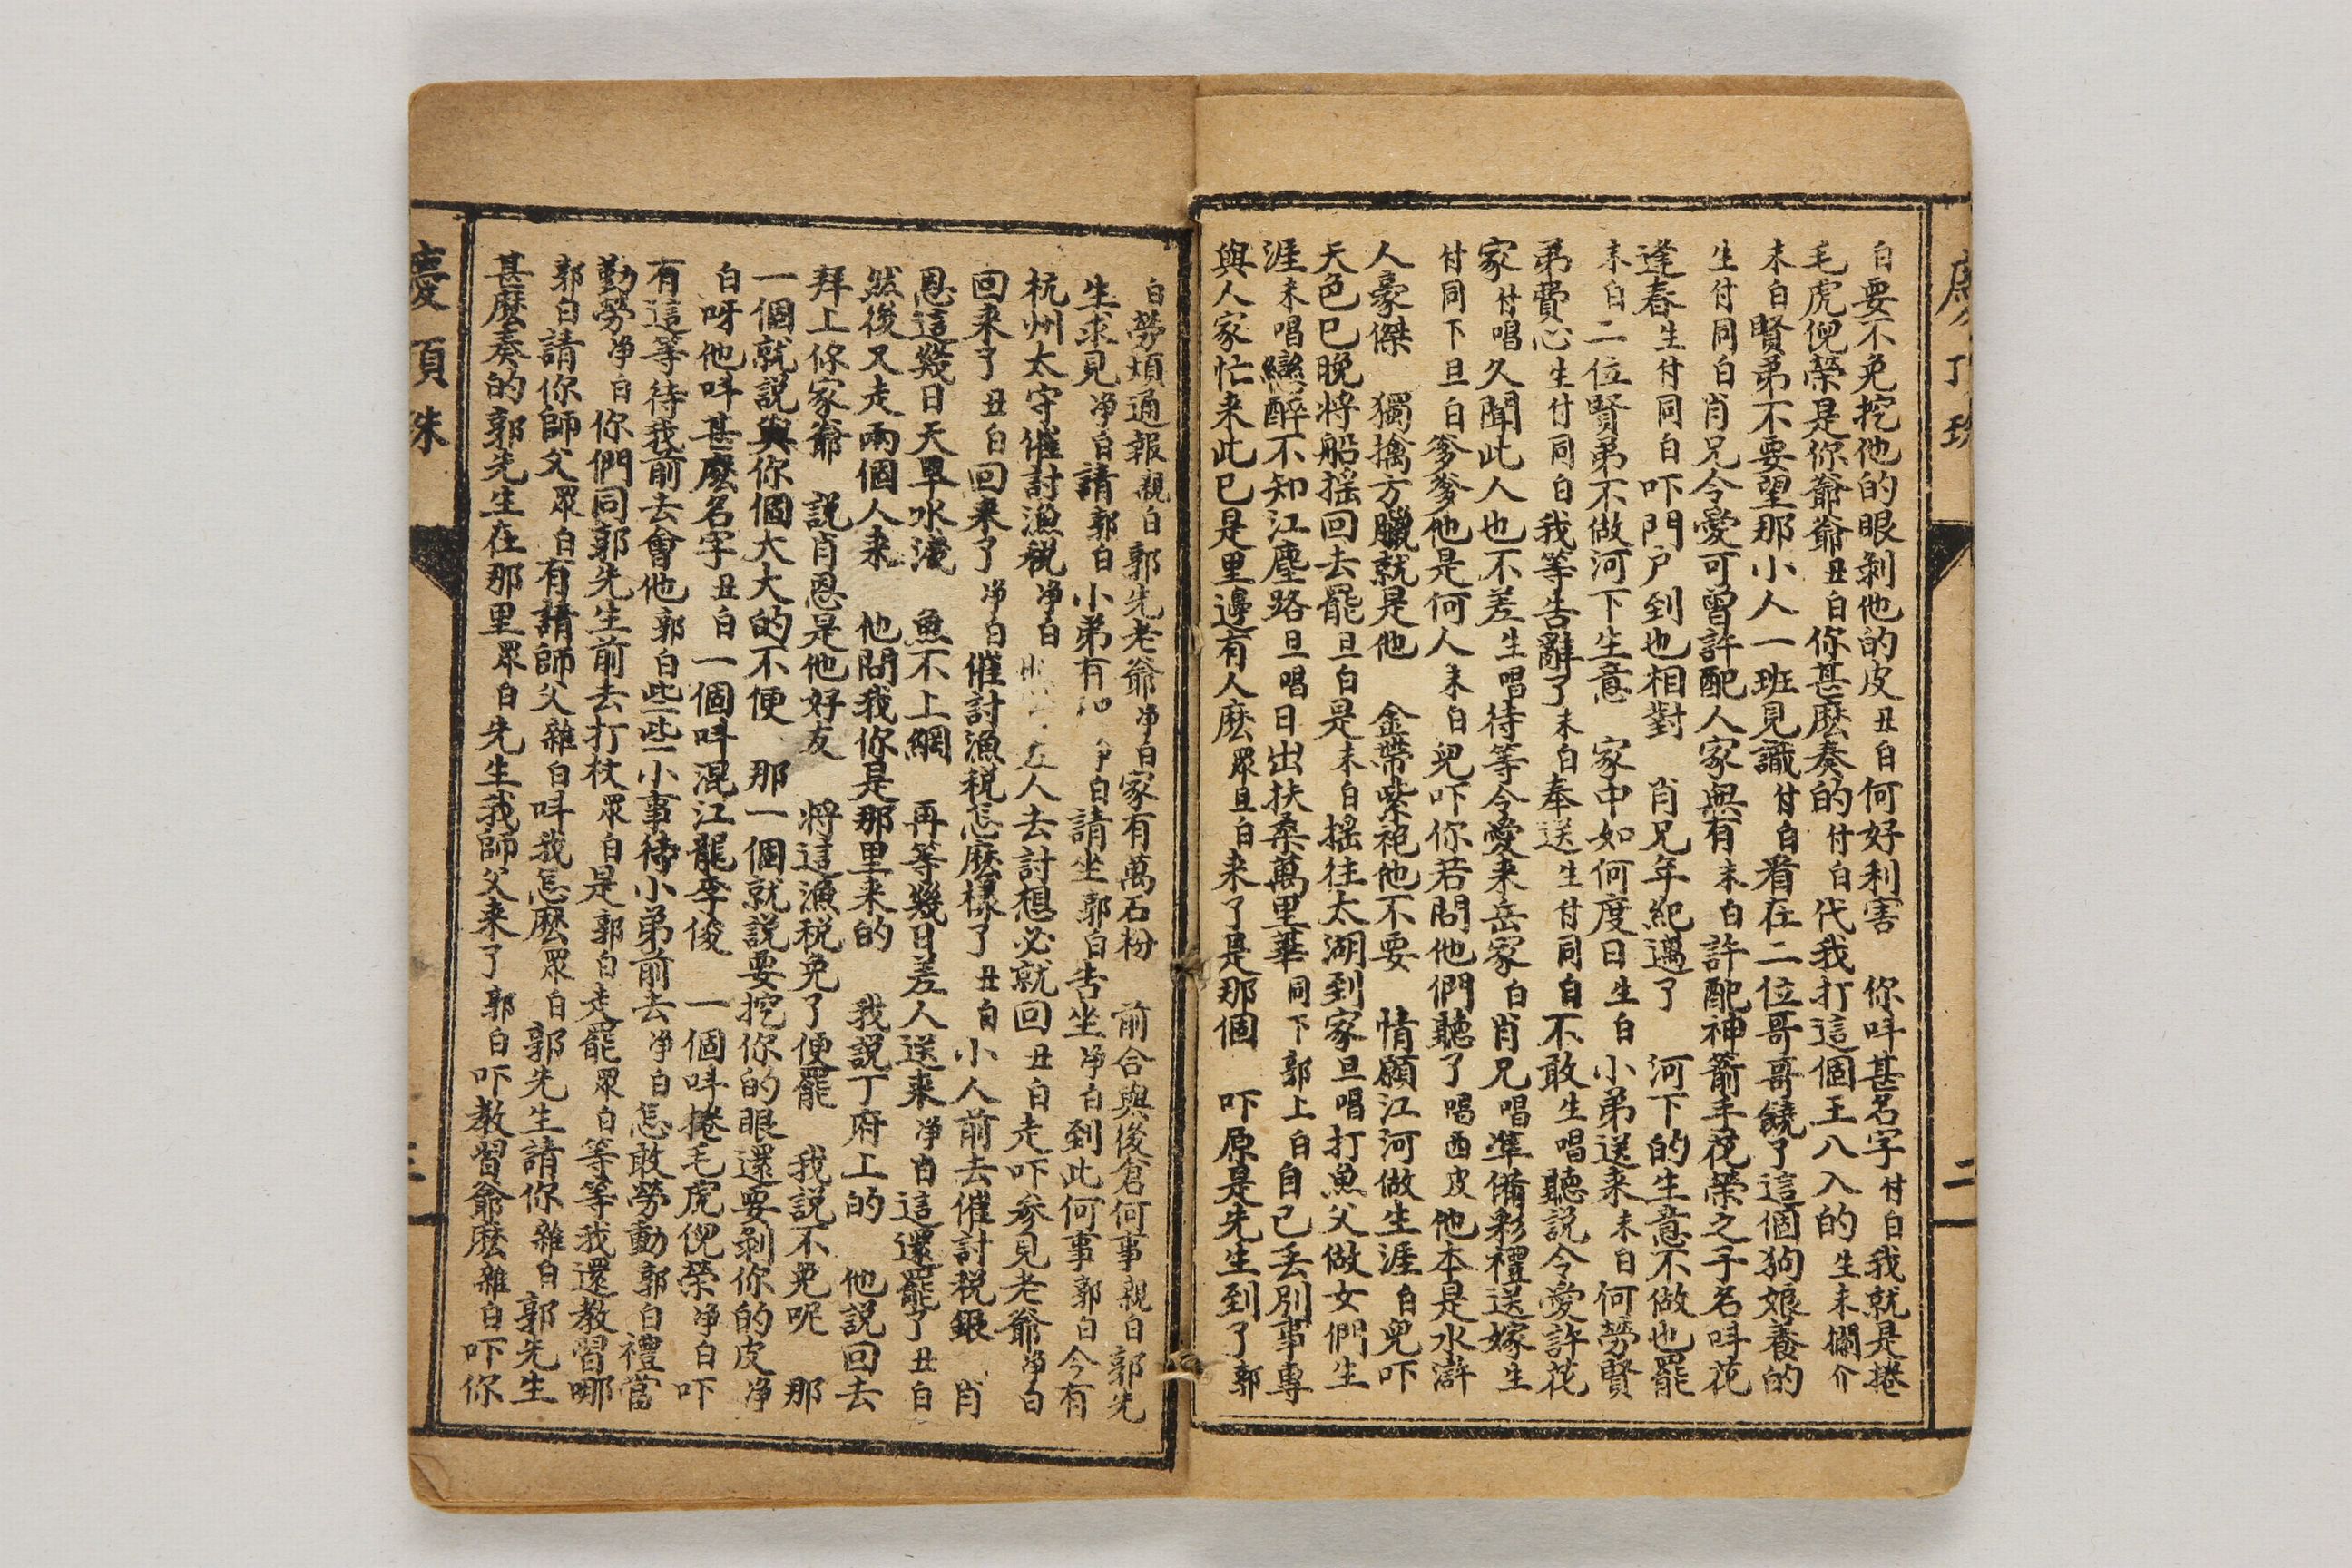 白要不免挖他的眼剝他的皮丑白何好利害 你呌甚名字付白我就是捲
毛虎倪榮是你爺爺丑白你甚麽奏的付白代我打這個王八入的生末攔介
末白賢弟不要望那小人一班見識付白看在二位哥哥饒了這個狗娘養的
生付同白肖兄令愛可曾許配人家無有末白許配神箭手花榮之子名呌花
逢春生付同白吓門户到也相對 肖兄年紀邁了 河下的生意不做也罷
末白二位賢弟不做河下生意 家中如何度日生白小弟送來末白何勞賢
弟費心生付同白我等告辭了末白奉送生付同白不敢生唱聽説令愛許花
家付唱久聞此人也不差生唱待等令愛来岳家白肖兄唱準備彩禮送嫁生
付同下旦白爹爹他是何人末白兒吓你若問他們聽了唱西皮他本是水滸
人豪傑 獨擒方臘就是他 金帶紫袍他不要 情願江河做生涯白兒吓
天色已晚將船摇回去罷旦白是末白摇往太湖到家旦唱打魚父做女們生
涯末唱戀醉不知江塵路旦唱日出扶桑萬里華同下郭上白自己丢別事專
與人家忙来此已是里邊有人麽眾旦白来了是那個 吓原是先生到了郭
白勞煩通報親白郭先老爺净白家有萬石粉 前合與後倉何事親白郭先
生求見净白請郭白小弟有 净白請坐郭白告坐净白到此何事郭白今有
杭州太守催討漁税净白 人去討想必就回丑白走吓参見老爺净白
回来了丑白回来了净白催討漁税怎麽樣了丑白小人前去催討税銀 肖
恩這幾日天旱水淺 魚不上網 再等幾日差人送来净白這還罷了丑白
然後又走兩個人来 他問我你是那里来的 我説丁府上的 他説回去
拜上你家爺 説肖恩是他好友 將這漁税免了便罷 我説不免呢 那
一個就説與你個大大的不便 那一個就説要挖你的眼還要剝你的皮净
白呀他呌甚麽名字丑白一個呌混江龍李俊 一個呌捲毛虎倪榮净白吓
有這等待我前去會他郭白些些小事待小弟前去净白怎敢勞動郭白禮當
勤勞净白你們同郭先生前去打杖眾白是郭白走罷眾白等等我還教習哪
郭白請你師父眾白有請師父雜白呌我怎麽眾白郭先生請你雜白郭先生
甚麽奏的郭先生在那里眾白先生我師父来了郭白吓教習爺麽雜白吓你
慶頂珠
二